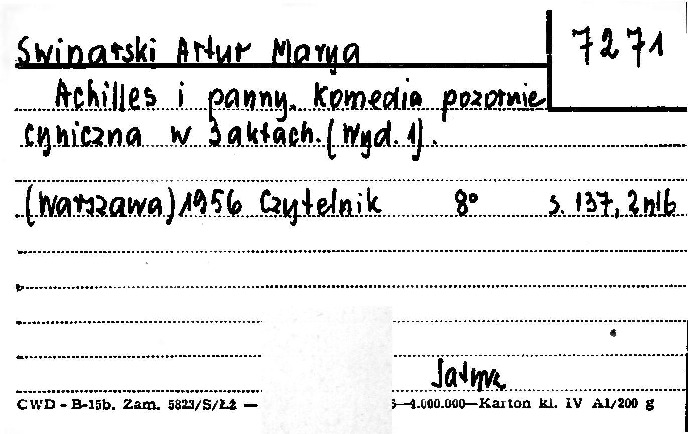 7271
Swinarski Artur Marya
Achilles i panny. Komedia pozornie
cyniczna w 3 aktach. (Wyd. 1).
(Warszawa) 1956 Czytelnik 8° s. 137, 2 nlb
Satyra
CWD - B-15b. Zam. 5823/S/Łź — 5—4.000.000—Karton kl. IV A1/200 g